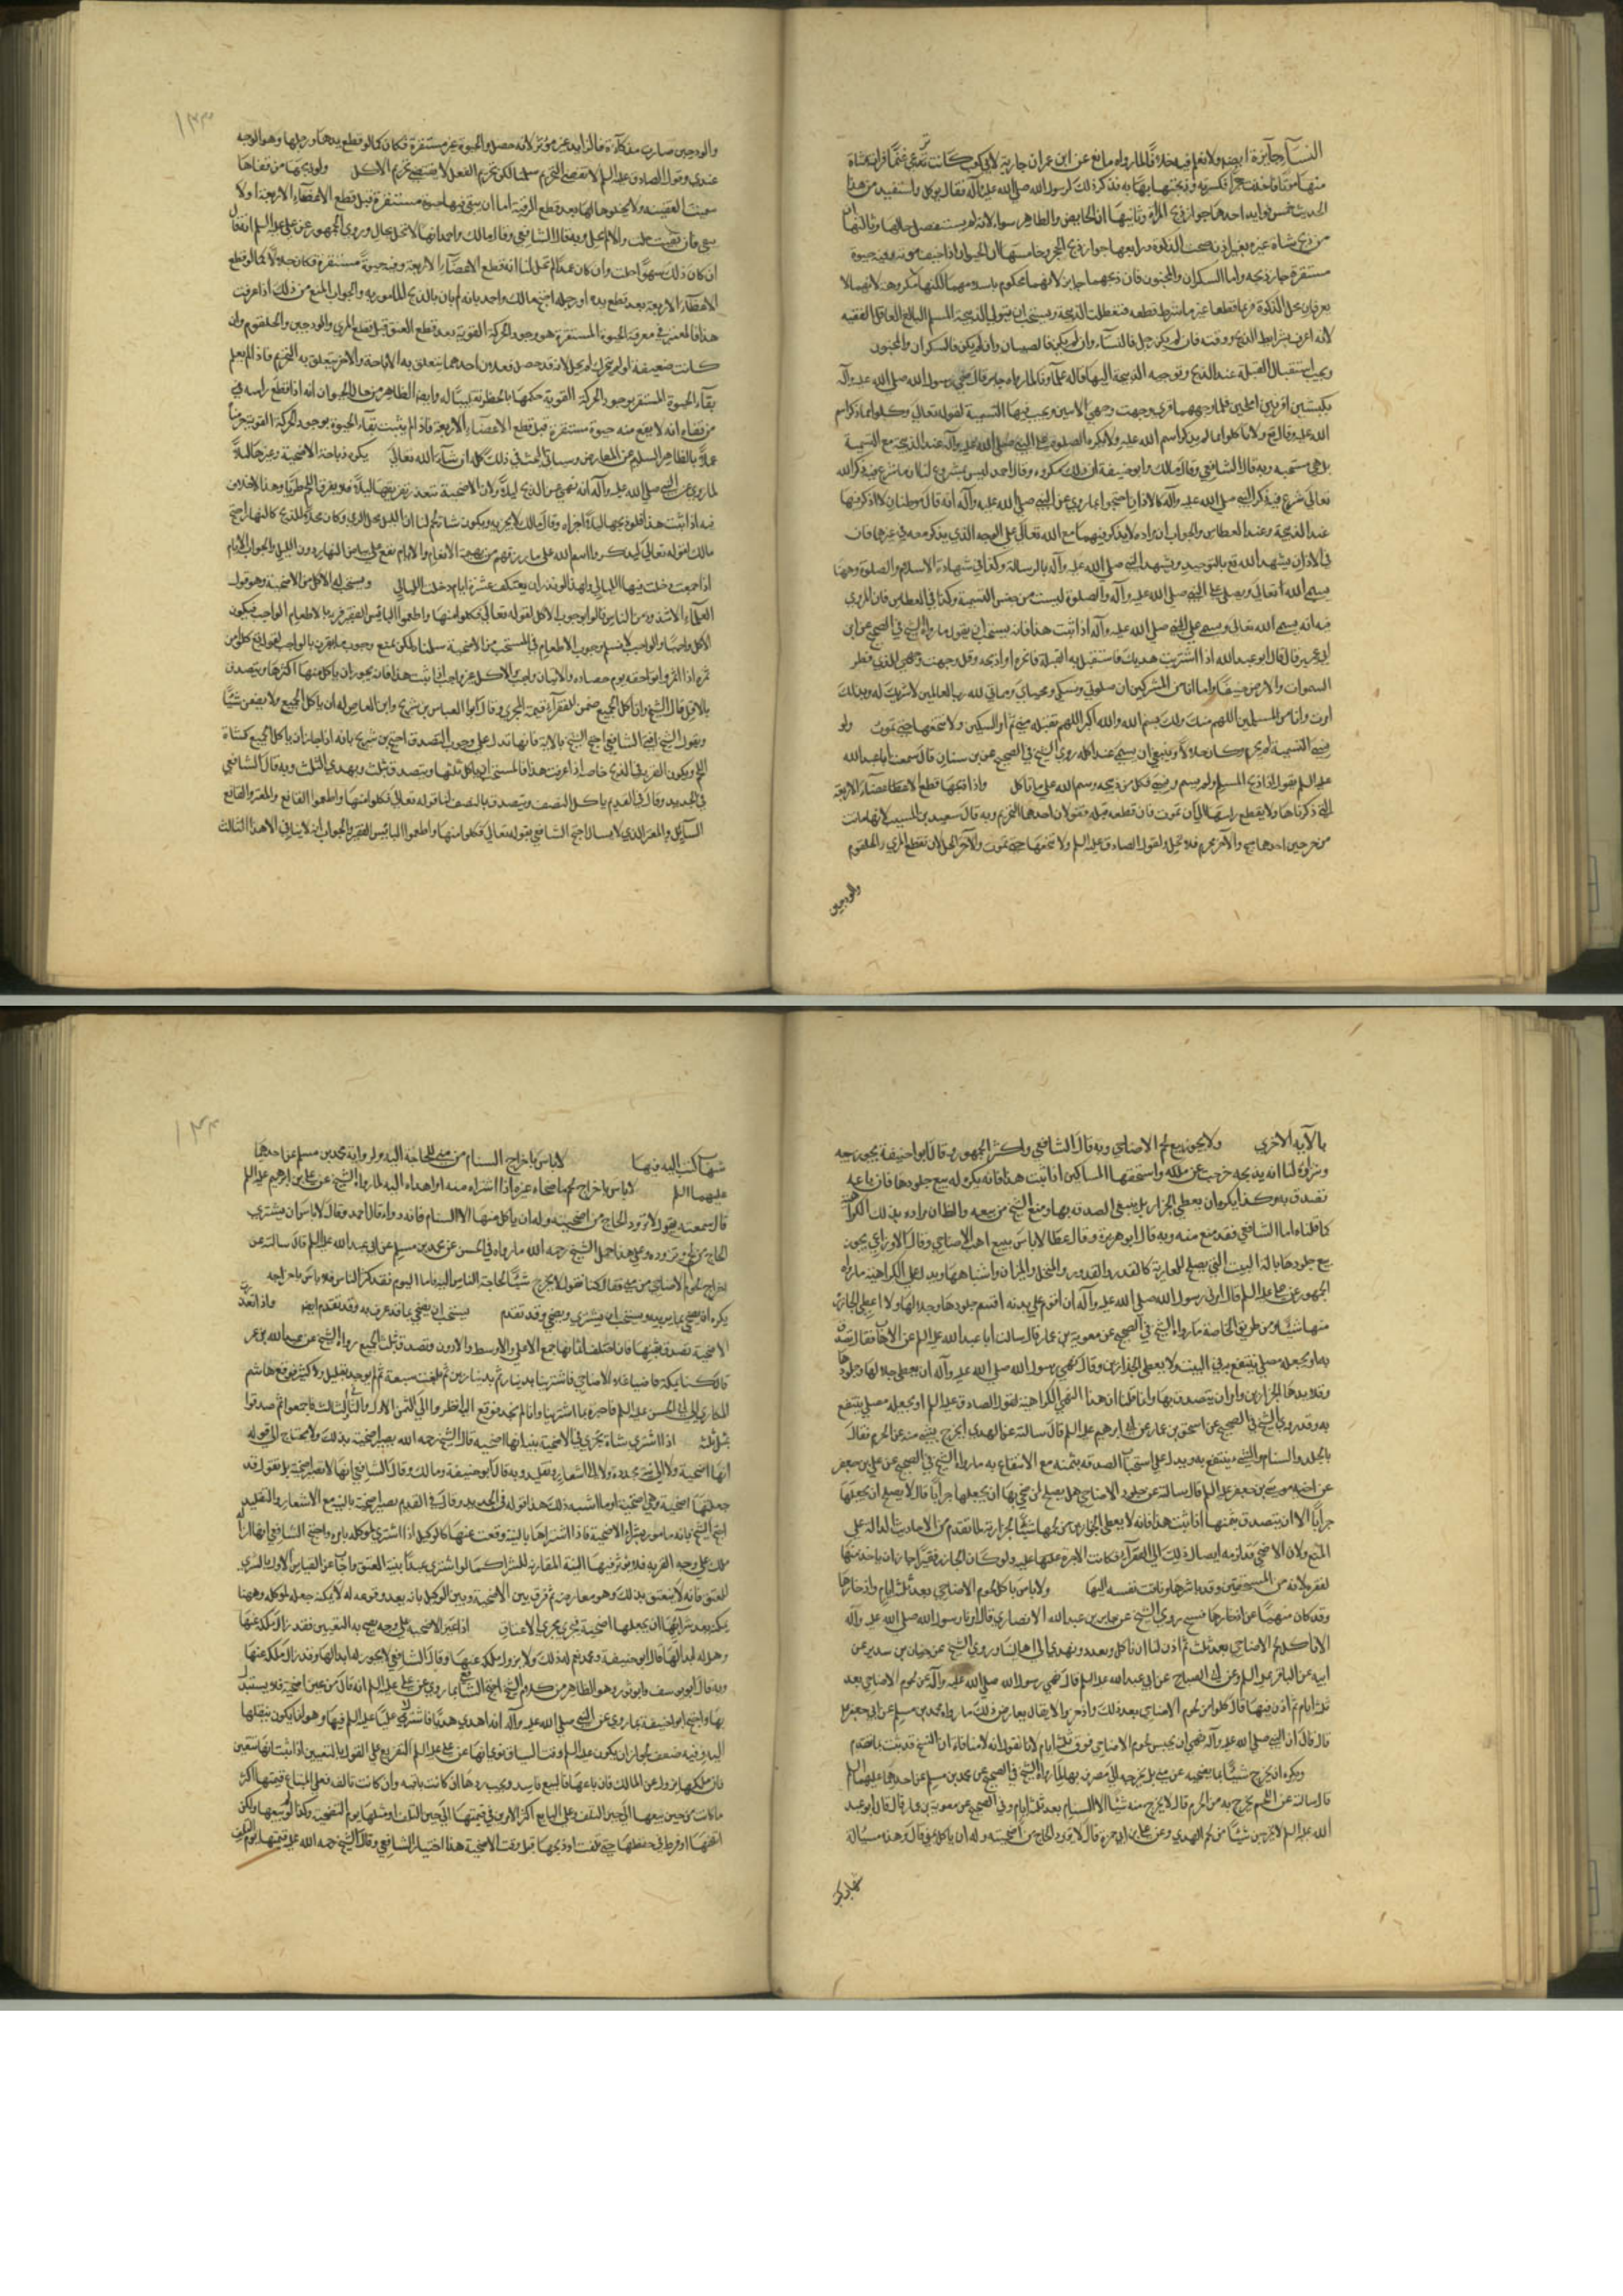 النساء جائزة ايضا ولا نعلم فيه خلافا لما رواه نافع عن ابن عمران جارية لال كعب كانت ترعى غنما فرات بشاة
منها موتا فاخذت حجرا فكسرته وذبحتها به فذكر ذلك لرسول الله صلى الله عليه وآله فقال يوكل واستفيد من هذا
الحديث خمس فوايد احدها جواز ذبح المرأة وثانيها ان الحايض والطاهر سواء لانه لم يستفصل حالها وثالثها ان
من ذبح شاة غيره بغير اذنه صحت الذكوة ورابعها جواز ذبح الحجر وخامسها ان الحيوان اذا خيف موته وفيه حيوة
مستقرة جاز ذبحه واما السكران والمجنون فان ذبحهما جايز لانهما محكوم باسلامهما لكنها مكروهة لانهما لا
يعرفان محل الذكوة فربما قطعا غير ما شرط قطعه ويستحب ان يتولى الذبيحة المسلم البالغ العاقل الفقيه
لانه اعرف بشرايط الذبح ووقته فان لم يكن رجل فالنساء وان لم يكن فالصبيان وان لم يكن فالسكران والمجنون
ويجب استقبال القبلة عند الذبح وتوجيه الذبيحة اليها قاله علماؤنا لما رواه جابر قال ضحى رسول الله صلى الله عليه وآله
بكبشين اقرنين املحين فلما وجههما قرى وجهت وجهي الآيتين ويجب فيها التسمية لقوله تعالى وكلوا مما ذكر اسم
الله عليه وقال تع ولا تاكلوا مما لم يذكر اسم الله عليه ولا يكره الصلوة على النبي صلى الله عليه وآله عند الذبيحة مع التسمية
بل هي مستحبه وبه قال الشافعي وقال مالك وابو حنيفة ان ذلك مكروه وقال احمد ليس بمشروع لنا ان ما شرع فيه ذكر الله
تعالى شرع فيه ذكر النبي صلى الله عليه وآله كالاذان احتجوا بما روى عن النبي صلى الله عليه وآله انه قال موطنان لا اذكر فيها
عند الذبيحة وعند العطاس والجواب ان مراده لا يذكر فيهما مع الله تعالى على الوجه الذي يذكر معه في غيرهما فان
في الاذان يشهد لله تع بالتوحيد ويشهد للنبي صلى الله عليه وآله بالرسالة وكذا في شهادة الاسلام والصلوة وهنا
يسمى الله تعالى ويصلى على النبي صلى الله عليه وآله والصلوة ليست من جنس التسمية وكذا في العطاس فان المروي
فيه انه يسمى الله تعالى ويصلى على النبي صلى الله عليه وآله اذا ثبت هذا فانه يستحب ان يقول ما رواه الشيخ في الصحيح عن ابن
ابي عمير قال قال ابو عبد الله اذا اشتريت هديك فاستقبل به القبلة فانحره او اذبحه وقل وجهت وجهي للذي فطر
السموات والارض حنيفا وما انا من المشركين ان صلوتي ونسكي ومحياي ومماتي لله رب العالمين لا شريك له وبذلك
امرت وانا من المسلمين اللهم منك ولك بسم الله والله اكبر اللهم تقبله مني ثم امر السكين ولا تنخعها حتى تموت ولو
نسى التسمية لم يحرم وكان حلالا وينبغي ان يسمى عند اكله روى الشيخ في الصحيح عن بن سنان قال سمعت ابا عبد الله
عليه السلم يقول اذا ذبح المسلم ولم يسم ونسى فكل من ذبيحته وسم الله على ما تاكل واذا ذبحها قطع الاعضاء الاربعة
التي ذكرناها ولا يقطع راسها الى ان تموت فان قطعه قبله فقولان احدهما التحريم وبه قال سعيد بن المسيب لانها ماتت
من جرحين احدهما مبيح والآخر محرم فلا تحل ولقول الصادق عليه السلم ولا تنخعها حتى تموت والآخر الحل لان بقطع المري والحلقوم
والودجين
والودجين صارت مذكاة فالزايد غير مؤثر لانه حصل والحيوة غير مستقرة فكان كما لو قطع يدها ورجلها وهو الوجه
عندي وقول الصادق عليه السلم لا يقتضي التحريم سلمنا لكن تحريم الفعل لا يقتضي تحريم الاكل ولو ذبحها من قفاها
سميت القفينة ولا يخلو حالها بعد قطع الرقبة اما ان يبقى فيها حيوة مستقرة قبل قطع الاعضاء الاربعة او لا
يبقى فان بقيت حلت والا لم تحل وبه قال الشافعي وقال مالك واحمد انها لا تحل بحال وروى الجمهور عن علي عليه السلم انه قال
ان كان ذلك سهوا حلت وان كان عمدا لم تحل لنا انه قطع الاعضاء الاربعة وفيه حيوة مستقرة فكان حلالا كما لو قطع
الاعضاء الاربعة بعد قطع يده او رجله احتج مالك واحمد بانه لم يات بالذبح المامور به والجواب المنع من ذلك اذا عرفت
هذا فالمعتبر في معرفة الحيوة المستقرة هو وجود الحركة القوية بعد قطع العنق قبل قطع المري والودجين والحلقوم وان
كانت ضعيفة او لم يتحرك لم يحل لانه قد حصل فعلان احدهما يتعلق به الاباحة والآخر يتعلق به التحريم فاذا لم يعلم
بقاء الحيوة المستقرة بوجود الحركة القوية حكمها بالحظر تغليبا له وايضا الظاهر من حال الحيوان انه اذا قطع راسه في
من قفاه انه لا يبقى منه حيوة مستقرة قبل قطع الاعضاء الاربعة فاذا لم يثبت بقاء الحيوة بوجود الحركة القوية حرمنا
عملا بالظاهر السليم عن المعارض وسياتي البحث في ذلك كله ان شاء الله تعالى يكره ذباحة الاضحية وغيرها ليلا
لما روى عن النبي صلى الله عليه وآله انه نهى عن الذبح ليلا ولان الاضحية تتعذر تفريقها ليلا فلا يفرق اللحم طريا وهذا لا خلاف
فيه اذا ثبت هذا فلو ذبحها ليلا اجزاه وقال مالك لا يجزيه ويكون شاة لحم لنا ان الليل محل الرمي وكان محلا للذبح كالنهار احتج
مالك بقوله تعالى ليذكروا اسم الله على ما رزقهم من بهيمة الانعام والايام تقع على بياض النهار دون الليل والجواب الايام
اذا جمعت دخلت فيها الليالي ولهذا لو نذر ان يعتكف عشرة ايام دخلت الليالي ويستحب له الاكل من الاضحية وهو قول
العلماء الا شذوذ من الناس قالوا بوجوب الاكل لقوله تعالى فكلوا منها واطعموا البائس الفقير قرينا بلاطعام الواجب فيكون
الاكل واجبا والجواب لا نسلم وجوب الاطعام في المستحب من الاضحية سلمنا لكن نمنع وجوب ما قرن بالواجب لقوله تع كلوا من
ثمره اذا اثمر واتوا حقه يوم حصاده والايتان واجب والاكل غير واجب اذا ثبت هذا فانه يجوز ان ياكل منها اكثرها ويتصدق
بالاقل قال الشيخ وان اكل الجميع ضمن للفقراء قيمة المجزي وقال ابو العباس بن شريح وابن القاص له ان ياكل الجميع ولا يضمن شيئا
وبقول الشيخ افتى الشافعي احتج الشيخ بالآية فانها تدل على وجوب التصدق احتج بن شريح بانه اذا جاز ان ياكل الجميع كشاة
اللحم ويكون القربة في الذبح خاصا اذا عرفت هذا فالمستحب ان ياكل ثلثها ويتصدق بثلث ويهدي الثلث وبه قال الشافعي
في الجديد وقال في القديم ياكل النصف ويتصدق بالنصف لنا قوله تعالى فكلوا منها واطعموا القانع والمعتر والقانع
السائل والمعتر الذي لا يسال احتج الشافعي بقوله تعالى فكلوا منها واطعموا البائس الفقير والجواب انه لا ينافي الاهداء الثالث
بالآية الاخرى ولا يجوز بيع لحم الاضاحي وبه قال الشافعي واكثر الجمهور وقال ابو حنيفة يجوز بيعه
وشراؤه لنا انه بذبحه خرجت عن ملكه واستحقها المساكين اذا ثبت هذا فانه يكره له بيع جلودها فان باعه
تصدق به وكذا يكره ان يعطى الجزار بل ينبغي الصدقة بها ومنع الشيخ من بيعه والظاهر ان مراده بذلك الكراهة
كما قلناه اما الشافعي فقد منع منه وبه قال ابو هريرة وقال عطا لا باس ببيع اهب الاضاحي وقال الاوزاعي يجوز
بيع جلودها بالة البيت التي يصلح للعارية كالقدر والقدوم والمنخل والميزان واشباهها ويدل على الكراهية ما رواه
الجمهور عن علي عليه السلم قال امرني رسول الله صلى الله عليه وآله ان اقوم على بدنه اقسم جلودها وجلالها ولا اعطى الجازر
منها شيئا ومن طريق الخاصة ما رواه الشيخ في الصحيح عن معوية بن عمار قال سالت ابا عبد الله عليه السلم عن الاهاب فقال تصدق
به او يجعله مصلى ينتفع به في البيت ولا يعطى الجزارين وقال نهى رسول الله صلى الله عليه وآله ان يعطى جلالها وجلودها
وقلايدها الجزارين وامر ان يتصدق بها وانما قلنا ان هذا النهي للكراهية لقول الصادق عليه السلم او يجعله مصلى ينتفع
به وقد روى الشيخ في الصحيح عن اسحق بن عمار عن ابي ابرهيم عليه السلم قال سالته عن الهدي ايخرج بشيء منه عن الحرم فقال
بالجلد والسنام والشيء ينتفع به ويدل على استحباب الصدقة بثمنه مع الانتفاع به ما رواه الشيخ في الصحيح عن علي بن جعفر
عن اخيه موسى بن جعفر عليه السلم قال سالته عن جلود الاضاحي هل يصلح لمن ضحى بها ان يجعلها جرابا قال لا يصلح ان يجعلها
جرابا الا ان يتصدق بثمنها اذا ثبت هذا فانه لا يعطى الجزار من لحمها شيئا لجزارته لما تقدم من الاحاديث الدالة على
المنع ولان الاضحى قد لزمه ايصال ذلك الى الفقراء فكانت الاجرة عليها عليه ولو كان الجازر فقيرا جاز ان ياخذ منها
لفقره لانه من المستحقين وقد باشرها وتاقت نفسه اليها ولا باس باكل لحوم الاضاحي بعد ثلثة ايام وادخارها
وقد كان منهيا عن ادخارها فنسخ روى الشيخ عن جابر بن عبد الله الانصاري قال امرنا رسول الله صلى الله عليه وآله
الا ناكل لحم الاضاحي بعد ثلث ثم اذن لنا ان ناكل ونقدد ونهدي الى اهالينا وروى الشيخ عن حنان بن سدير عن
ابيه عن الباقر عليه السلم وعن ابي الصباح عن ابي عبد الله عليه السلم قال نهى رسول الله صلى الله عليه وآله عن لحوم الاضاحي بعد
ثلثة ايام ثم اذن فيها قال كلوا من لحوم الاضاحي بعد ذلك وادخروا لا يقال يعارض ذلك ما رواه محمد بن مسلم عن ابي جعفر عليه
قال قال ان النبي صلى الله عليه وآله نهى ان يحبس لحوم الاضاحي فوق ثلثة ايام لانا نقول انه لا منافاة اذ النسخ قد ثبت بما تقدم
ويكره ان يخرج شيئا مما يضحيه عن منى بل يخرجه الى مصرف بها لما رواه الشيخ في الصحيح عن محمد بن مسلم عن احدهما عليهما السلم
قال سالته عن اللحم يخرج به من الحرم قال لا يخرج منه شيئا الا السنام بعد ثلثة ايام وفي الصحيح عن معوية بن عمار قال قال ابو عبد
الله عليه السلم لا يخرجن شيئا من لحم الهدي وعن علي بن ابي حمزة قال لا يتزود الحاج من اضحيته وله ان ياكل بمنى قال وهذه مسئالة
شهاب كتب
شهاب كتب اليه فيها لا باس باخراج السنام من منى للحاجة اليه ولرواية محمد بن مسلم عن احدهما
عليهما السلم لا باس باخراج لحم ما ضحاه غيره اذا اشتراه منه او اهداه اليه لما رواه الشيخ عن علي بن ابرهيم عليه السلم
قال سمعته يقول لا يتزود الحاج من اضحيته وله ان ياكل منها الا السنام فانه دواء قال احمد وقال لا باس ان يشتري
الحاج من لحم ويتزوده وعلى هذا حمل الشيخ رحمه الله ما رواه في الحسن عن محمد بن مسلم عن ابي عبد الله عليه السلم قال سالته عن
اخراج لحوم الاضاحي من منى فقال كنا نقول لا يخرج شيئا لحاجة الناس اليه فاما اليوم فقد كثر الناس فلا باس باخراجه
يكره ان يضحي بما يربيه ويستحب ان يشتري ويضحي وقد تقدم يستحب ان يضحي بما قد عرف به وقد تقدم ايضا واذا تعذرت
الاضحية تصدق بثمنها فان اختلف اثمانها جمع الاعلى والاوسط والادون وتصدق بثلث الجميع رواه الشيخ عن عبد الله بن عمر
قال كنا بمكة فاصابنا غلاء الاضاحي فاشترينا بدينار ثم بدينارين ثم بلغت سبعة ثم لم يوجد بقليل ولا كثير فوقع هشام
المكاري الى ابي الحسن عليه السلم فاخبره بما اشترينا وانا لم نجد فوقع اليه انظروا الى الثمن الاول والثاني والثالث فاجمعوا ثم تصدقوا
بمثل ثلثه اذا اشترى شاة تجزي في الاضحية بنية انها اضحية قال الشيخ رحمه الله يصير اضحية بذلك ولا يحتاج الى قوله
انها اضحية ولا الى نية مجددة ولا الى اشعار وتقليد وبه قال ابو حنيفة ومالك وقال الشافعي انها لا تصير اضحية بل بقول قد
جعلتها اضحية وهي اضحية او ما اشبه ذلك هذا قوله في الجديد وقال في القديم يصير اضحية بالنية مع الاشعار والتقليد
احتج الشيخ بانه مامور بشراء الاضحية فاذا اشتراها بالنية وقعت عنها كالوكيل اذا اشترى لموكله بامره واحتج الشافعي انها ازالة
ملك على وجه القربة فلا يؤثر فيها النية المقارنة للشراء كما لو اشترى عبدا بنية العتق واجاب عن القياس الاول بالشرى
للعتق فانه لا ينعتق بذلك وهو معارضة ثم فرق بين الاضحية وبين الوكيل بانه بعد وقوعه له لا يمكنه جعله لموكله وههنا
يمكنه بعد شرائها ان يجعلها اضحية مجرى مجرى الاعتاق اذا عين الاضحية على وجه يصح به التعيين فقد زال ملكه عنها
وهل له ابدالها قال ابو حنيفة ومحمد نعم له ذلك ولا يزول ملكه عنها وقال الشافعي لا يجوز له ابدالها وقد زال ملكه عنها
وبه قال ابو يوسف وابو ثور وهو الظاهر من كلام الشيخ احتج الشافعي بما روى عن علي عليه السلم انه قال من عين اضحية فلا يستبدل
بها واحتج ابو حنيفة بما روى عن النبي صلى الله عليه وآله انه اهدى هديا فاشرك عليا عليه السلم فيها وهو انما يكون بنقلها
اليه وفيه ضعف لجواز ان يكون عليه السلم وقت السياق نوى انها عن علي عليه السلم التفريع على القول بالتعيين اذا ثبت انها تتعين
فان ملكها يزول عن المالك فان باعها فالبيع فاسد ويجب ردها ان كانت باقية وان كانت تالفة فعلى المبتاع قيمتها اكثر
ما كانت من حين بيعها الى حين التلف وعلى البايع اكثر الامرين من قيمتها الى حين التلف او مثلها يوم التضحية وكذا لو بيعها ولكن
اتلفها او فرط في حفظها حتى تلفت او ذبحها قبل وقت الاضحية هذا اختيار الشافعي وقال الشيخ رحمه الله عليه قيمتها يوم التلف